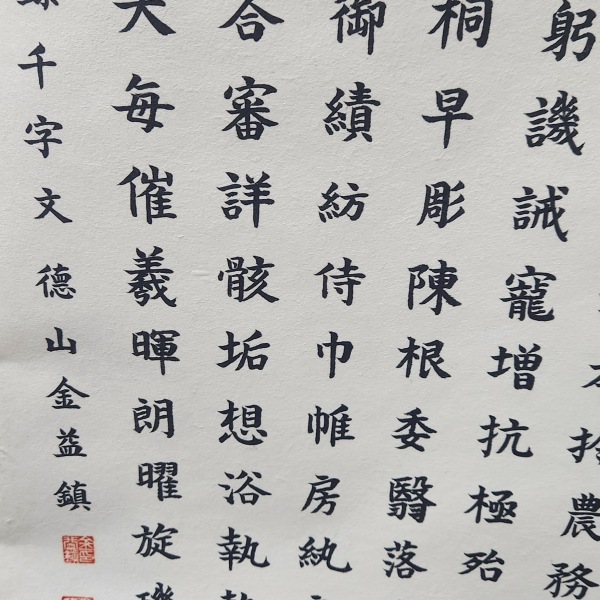 躬譏誡寵增抗極殆
桐早彫陳根委翳落
御績紡侍巾帷房紈
合審詳骸垢想浴執
每催羲暉朗曜旋
千字文德山金益鎮